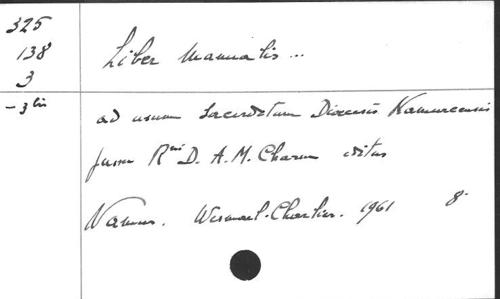 325
138
3
- 3 bis
Liber manualis ...
ad usum Sacerdotum Diocesis Namurcensis
jussu Rmi D. A. M. Charue editus
Namur. Wesmael-Charlier. 1961 8°